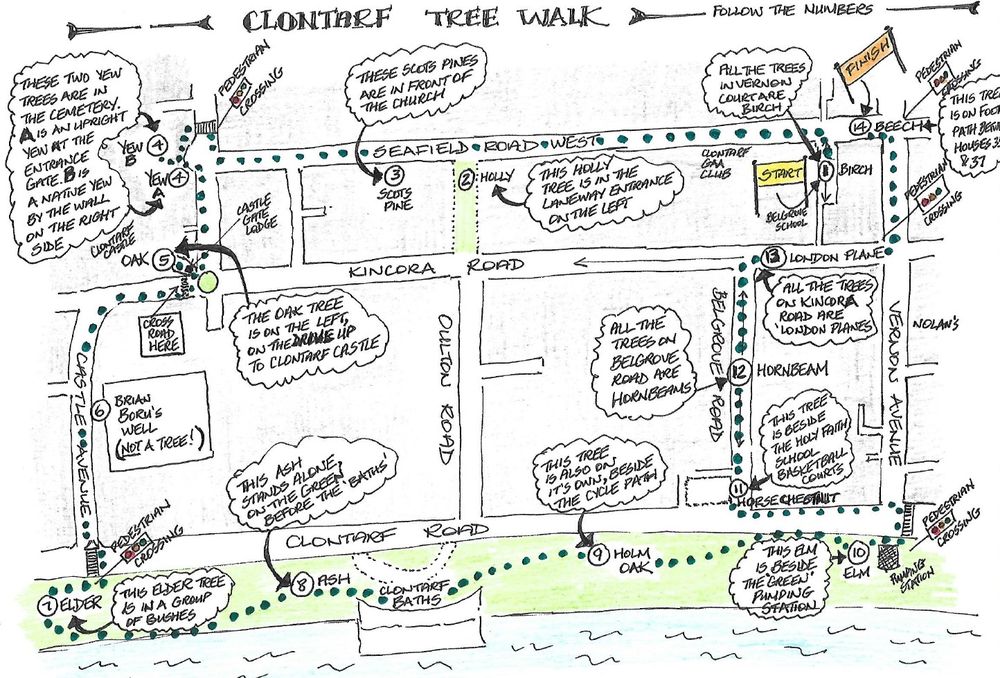 CLONTARF TREE WALK
FOLLOW THE NUMBERS
THESE TWO YEW
TREES ARE IN
THE CEMETERY.
A IS AN UPRIGHT
YEW AT THE
ENTRANCE
GATE B IS
A NATIVE YEW
BY THE WALL
ON THE RIGHT
SIDE
PEDESTRIAN
CROSSING
THESE SCOTS PINES
ARE IN FRONT OF
THE CHURCH
ALL THE TREES
IN VERNON
COURT ARE
BIRCH
FINISH
PEDESTRIAN
CROSSING
THIS TREE
IS ON FOOT
PATH
HOUSES 35
& 37
14 BEECH
YEW
B
4
YEW
A
4
SEAFIELD ROAD WEST
3
SCOTS
PINE
2 HOLLY
THIS HOLLY
TREE IS IN THE
LANEWAY ENTRANCE
ON THE LEFT
CLONTARF
GAA
CLUB
START
BELGROVE
SCHOOL
1 BIRCH
PEDESTRIAN
CROSSING
CASTLE
GATE
LODGE
CLONTARF
CASTLE
OAK 5
KINCORA ROAD
13 LONDON PLANE
CROSS
ROAD
HERE
THE OAK TREE
IS ON THE LEFT,
ON THE DRIVE UP
TO CLONTARF CASTLE
OULTON
ROAD
ALL THE TREES
ON KINCORA
ROAD ARE
LONDON PLANES
VERNON AVENUE
NOLAN'S
CASTLE AVENUE
6
BRIAN
BORU'S
WELL
(NOT A TREE!)
ALL THE
TREES ON
BELGROVE
ROAD ARE
HORNBEAMS
BELGROVE ROAD
12 HORNBEAM
THIS TREE
IS BESIDE
THE HOLY FAITH
SCHOOL
BASKETBALL
COURTS
11
HORSE CHESTNUT
THIS ASH
STANDS ALONE,
ON THE GREEN
BEFORE THE 'BATHS'
THIS TREE
IS ALSO ON
IT'S OWN, BESIDE
THE CYCLE PATH
PEDESTRIAN
CROSSING
CLONTARF ROAD
PEDESTRIAN
CROSSING
7 ELDER
THIS ELDER TREE
IS IN A GROUP
OF BUSHES
8 ASH
CLONTARF
BATHS
9 HOLM
OAK
THIS ELM
IS BESIDE
THE 'GREEN'
PUMPING
STATION
10
ELM
PUMPING
STATION